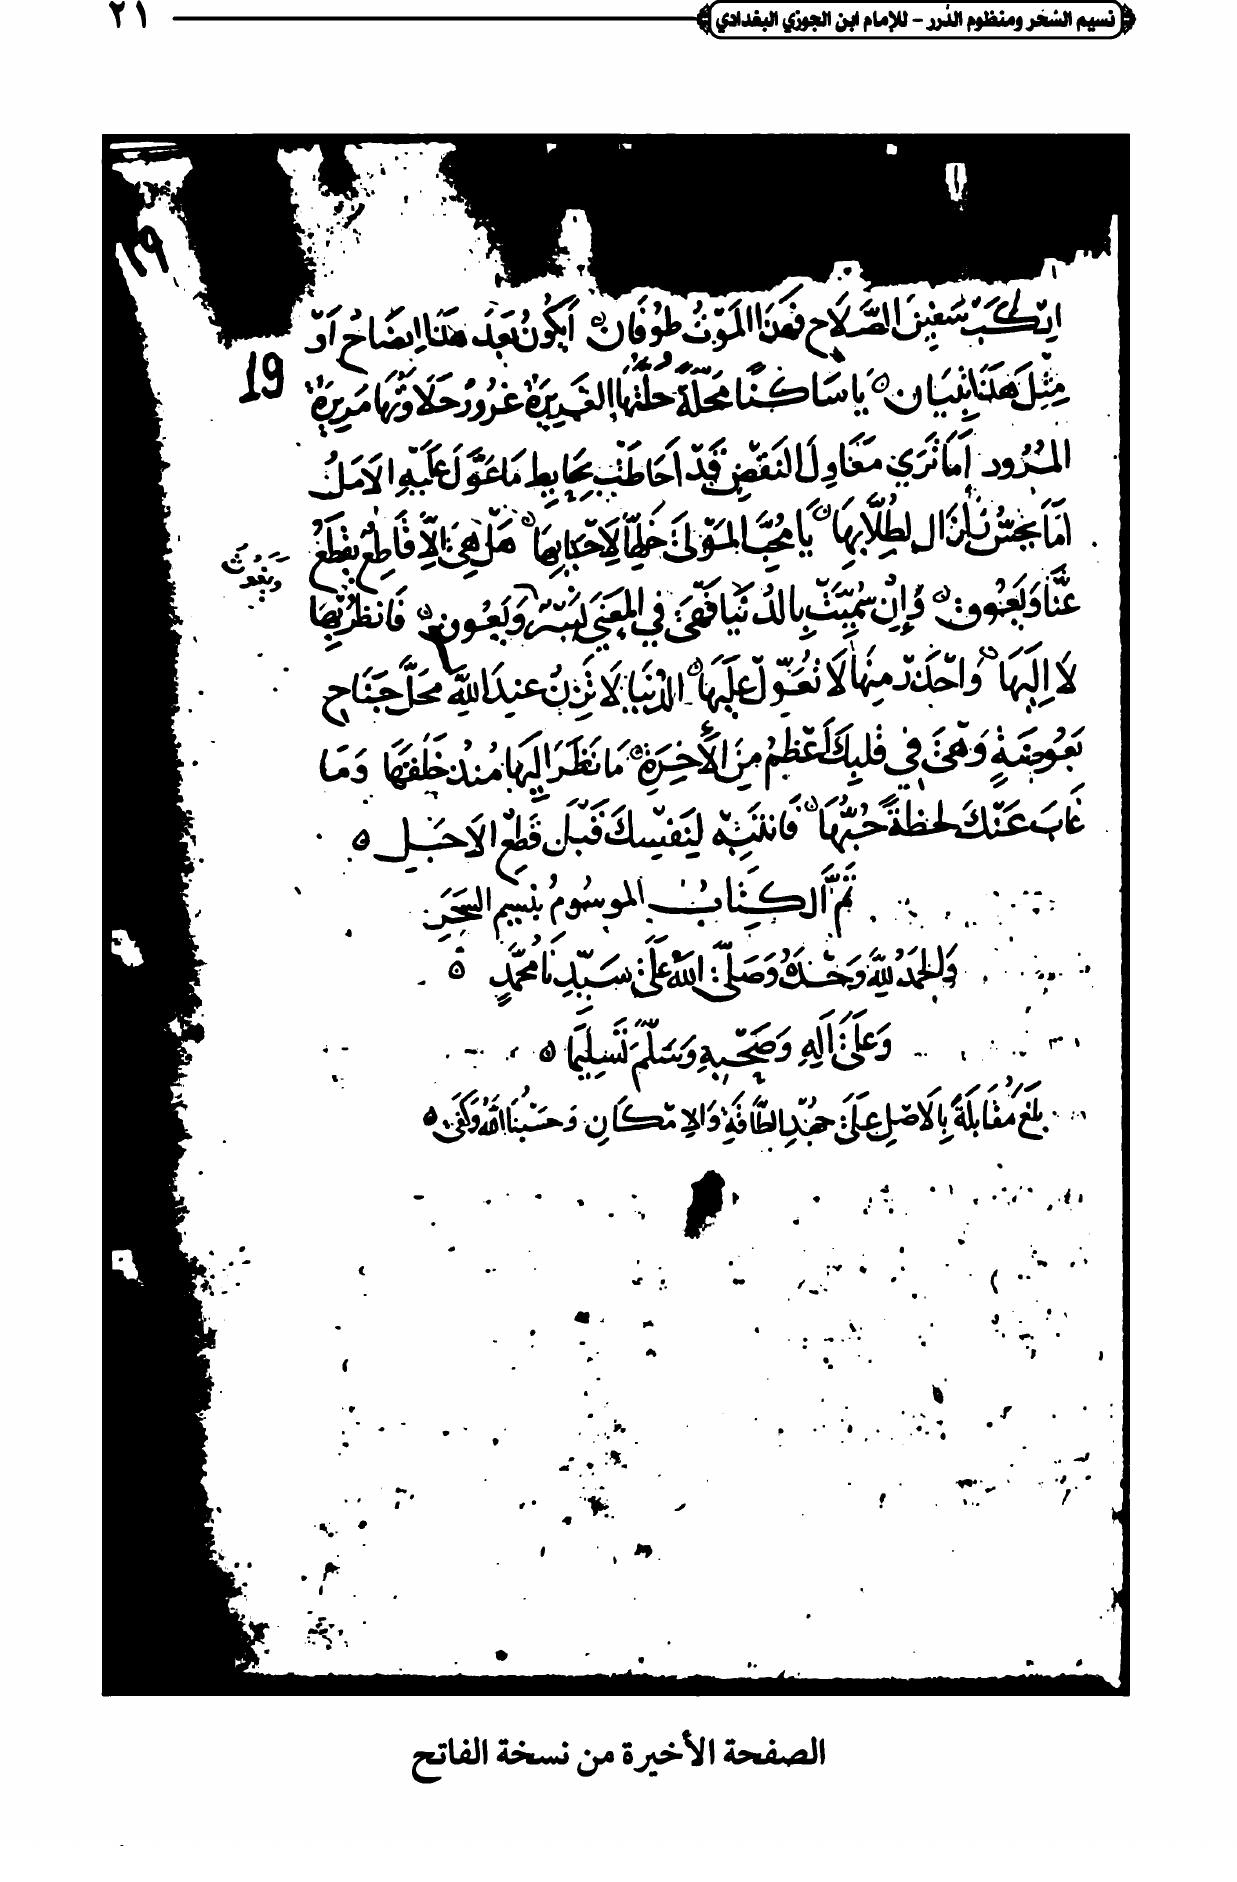 نسيم السَّحَر ومنظوم الدُّرر – للإمام ابن الجوزي البغدادي ٢١
١٩
اِرْكَبْ سَفِينَ الصَّلَاحِ فَهَذَا الْمَوْتُ طُوفَانٌ أَيَكُونُ بَعْدَ هَذَا اِيضَاحٌ اَوْ
19
مِثْلَ هَذَا تِبْيَان يَا سَاكِنًا مَحَلَّةً حَلَّتْهَا غُرُورُ حَلَاوَتُهَا مَرِيرَةُ
الْمُرُودِ اَمَا تَرَي مَعَاوِلَ النَقْضِ قَدْ اَحَاطَتْ بِحَايِطِ مَا عَوَّلَ عَلَيْهِ الاَمَلُ
اَمَا تُحِسُّ الزلْزَال لِطُلَّابِهَا يَا مُحِبَّا لِأَحْبَابِهَا هَلْ هِيَ اِلَّا قَاطِعٌ يَقْطَعُ
وَيَغُوثُ
عَنَّا وَيَعُوق وَاِنْ سُمِّيَتْ بِالدُنْيَا فَهِيَ فِي الْمَعْنَي نَسْرٌ وَيَعُوق فَانظُرْ بِهَا
لَا اِلَيْهَا وَاحْذَرْ مِنهَا لَا تُعَوِّلْ عَلَيْهَا الدُنْيَا لَا تَزِنُ عِندَ اللهِ مَحَلَّ جَنَاحِ
بَعُوضَةٍ وَهِيَ فِي قَلْبِكَ اَعْظَمُ مِنَ الأَخِرَةِ مَا نَظَرَ اِلَيْهَا مُنذُ خَلَقَهَا وَمَا
غَابَ عَنْكَ لحظَةً حُبُّهَا فَانتَبِهْ لِنَفْسِكَ قَبْلَ قَطْعِ الاَجَل ه
تَمَّ الكِتَابُ الموسُومُ بنَسِيمِ السَحَرِ
وَالحَمدُ لِلهِ وَحْدَهُ وَصَلَّى اللهُ عَلَى سَيِّدِنَا مُحَمَّدٍ ه
وَعَلَى اَلِهِ وَصَحْبِهِ وَسَلَّمَ تَسْلِيمًا ه
بَلَغَ مُقَابَلَةً بِالاَصْلِ عَلَى جَهْدِ الطَّاقَةِ وَالاِمْكَانِ وَحَسْبُنَا اللهُ وَكَفَى ه
الصفحة الأخيرة من نسخة الفاتح